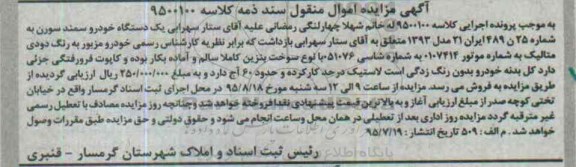 آگهی مزایده اموال منقول سند ذمه کلاسه ۹۵۰۰۱۰۰
به موجب پرونده اجرایی کلاسه ۹۵۰۰۱۰۰ له خانم شهلا چهارلنگی رمضانی علیه آقای ستار سهرابی یک دستگاه خودرو سمند سورن به
شماره ۲۵ ن ۴۸۹ ایران ۳۱ مدل ۱۳۹۳ متعلق به آقای ستار سهرابی بازداشت که برابر نظریه کارشناس رسمی خودرو مزبور به رنگ دودی
متالیک به شماره موتور ۰۱۰۷۴۱۴ به شماره شاسی ۰۵۱۰۷۶ با نوع سوخت بنزین کاملا سالم و آماده بکار بوده و کاپوت فرورفتگی جزئی
دارد کل بدنه خودرو بدون رنگ زدگی است لاستیک درجد کارکرده و حدود ۶۰ آج دارد و به مبلغ ۲۵۰/۰۰۰/۰۰۰ ریال ارزیابی گردیده از
طریق مزایده به فروش می رسد. مزایده از ساعت ۹ الی ۱۲ سه شنبه مورخ ۹۵/۸/۱۸ در محل اجرای ثبت اسناد گرمسار واقع در خیابان
تختی کوچه صدر از مبلغ ارزیابی آغاز و به بالاترین قیمت پیشنهادی نقدا فروخته خواهد شد و چنانچه روز مزایده مصادف با تعطیل رسمی
غیر مترقبه گردد مزایده روز اداری بعد از تعطیلی در همان محل و ساعت انجام می شود و حقوق دولتی و حق مزایده طبق مقررات وصول
خواهد شد. م الف: ۵۰۹ تاریخ انتشار: ۹۵/۷/۱۹
رئیس ثبت اسناد و املاک شهرستان گرمسار - قنبری